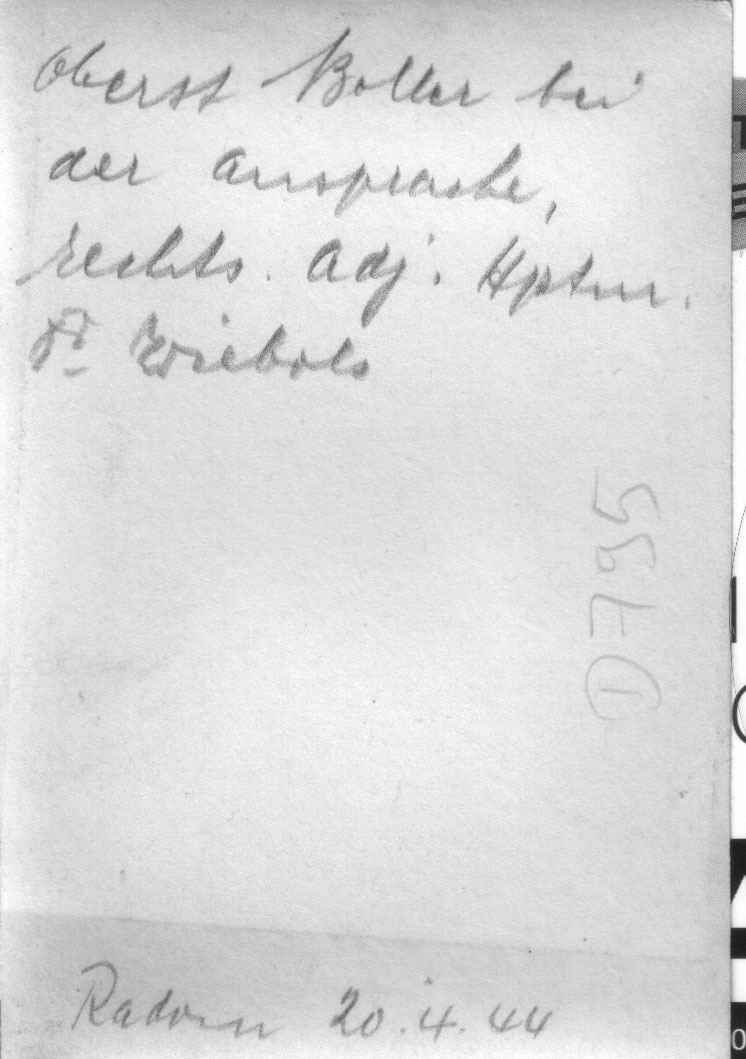 Oberst Boller bei
der Ansprache,
rechts. Adj. Hptm.
Dr. Wiebols
D 795
Radom 20.4.44